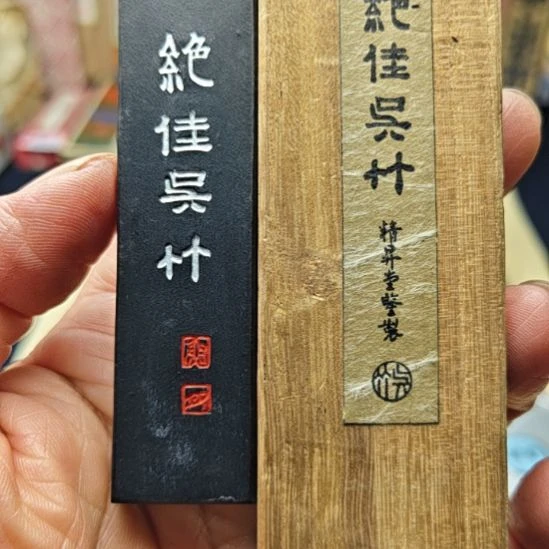 絶佳呉竹
絶佳呉竹
精昇堂鑒製